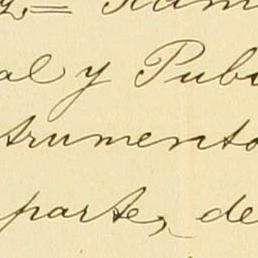 al y Pub
trumento
parte, de